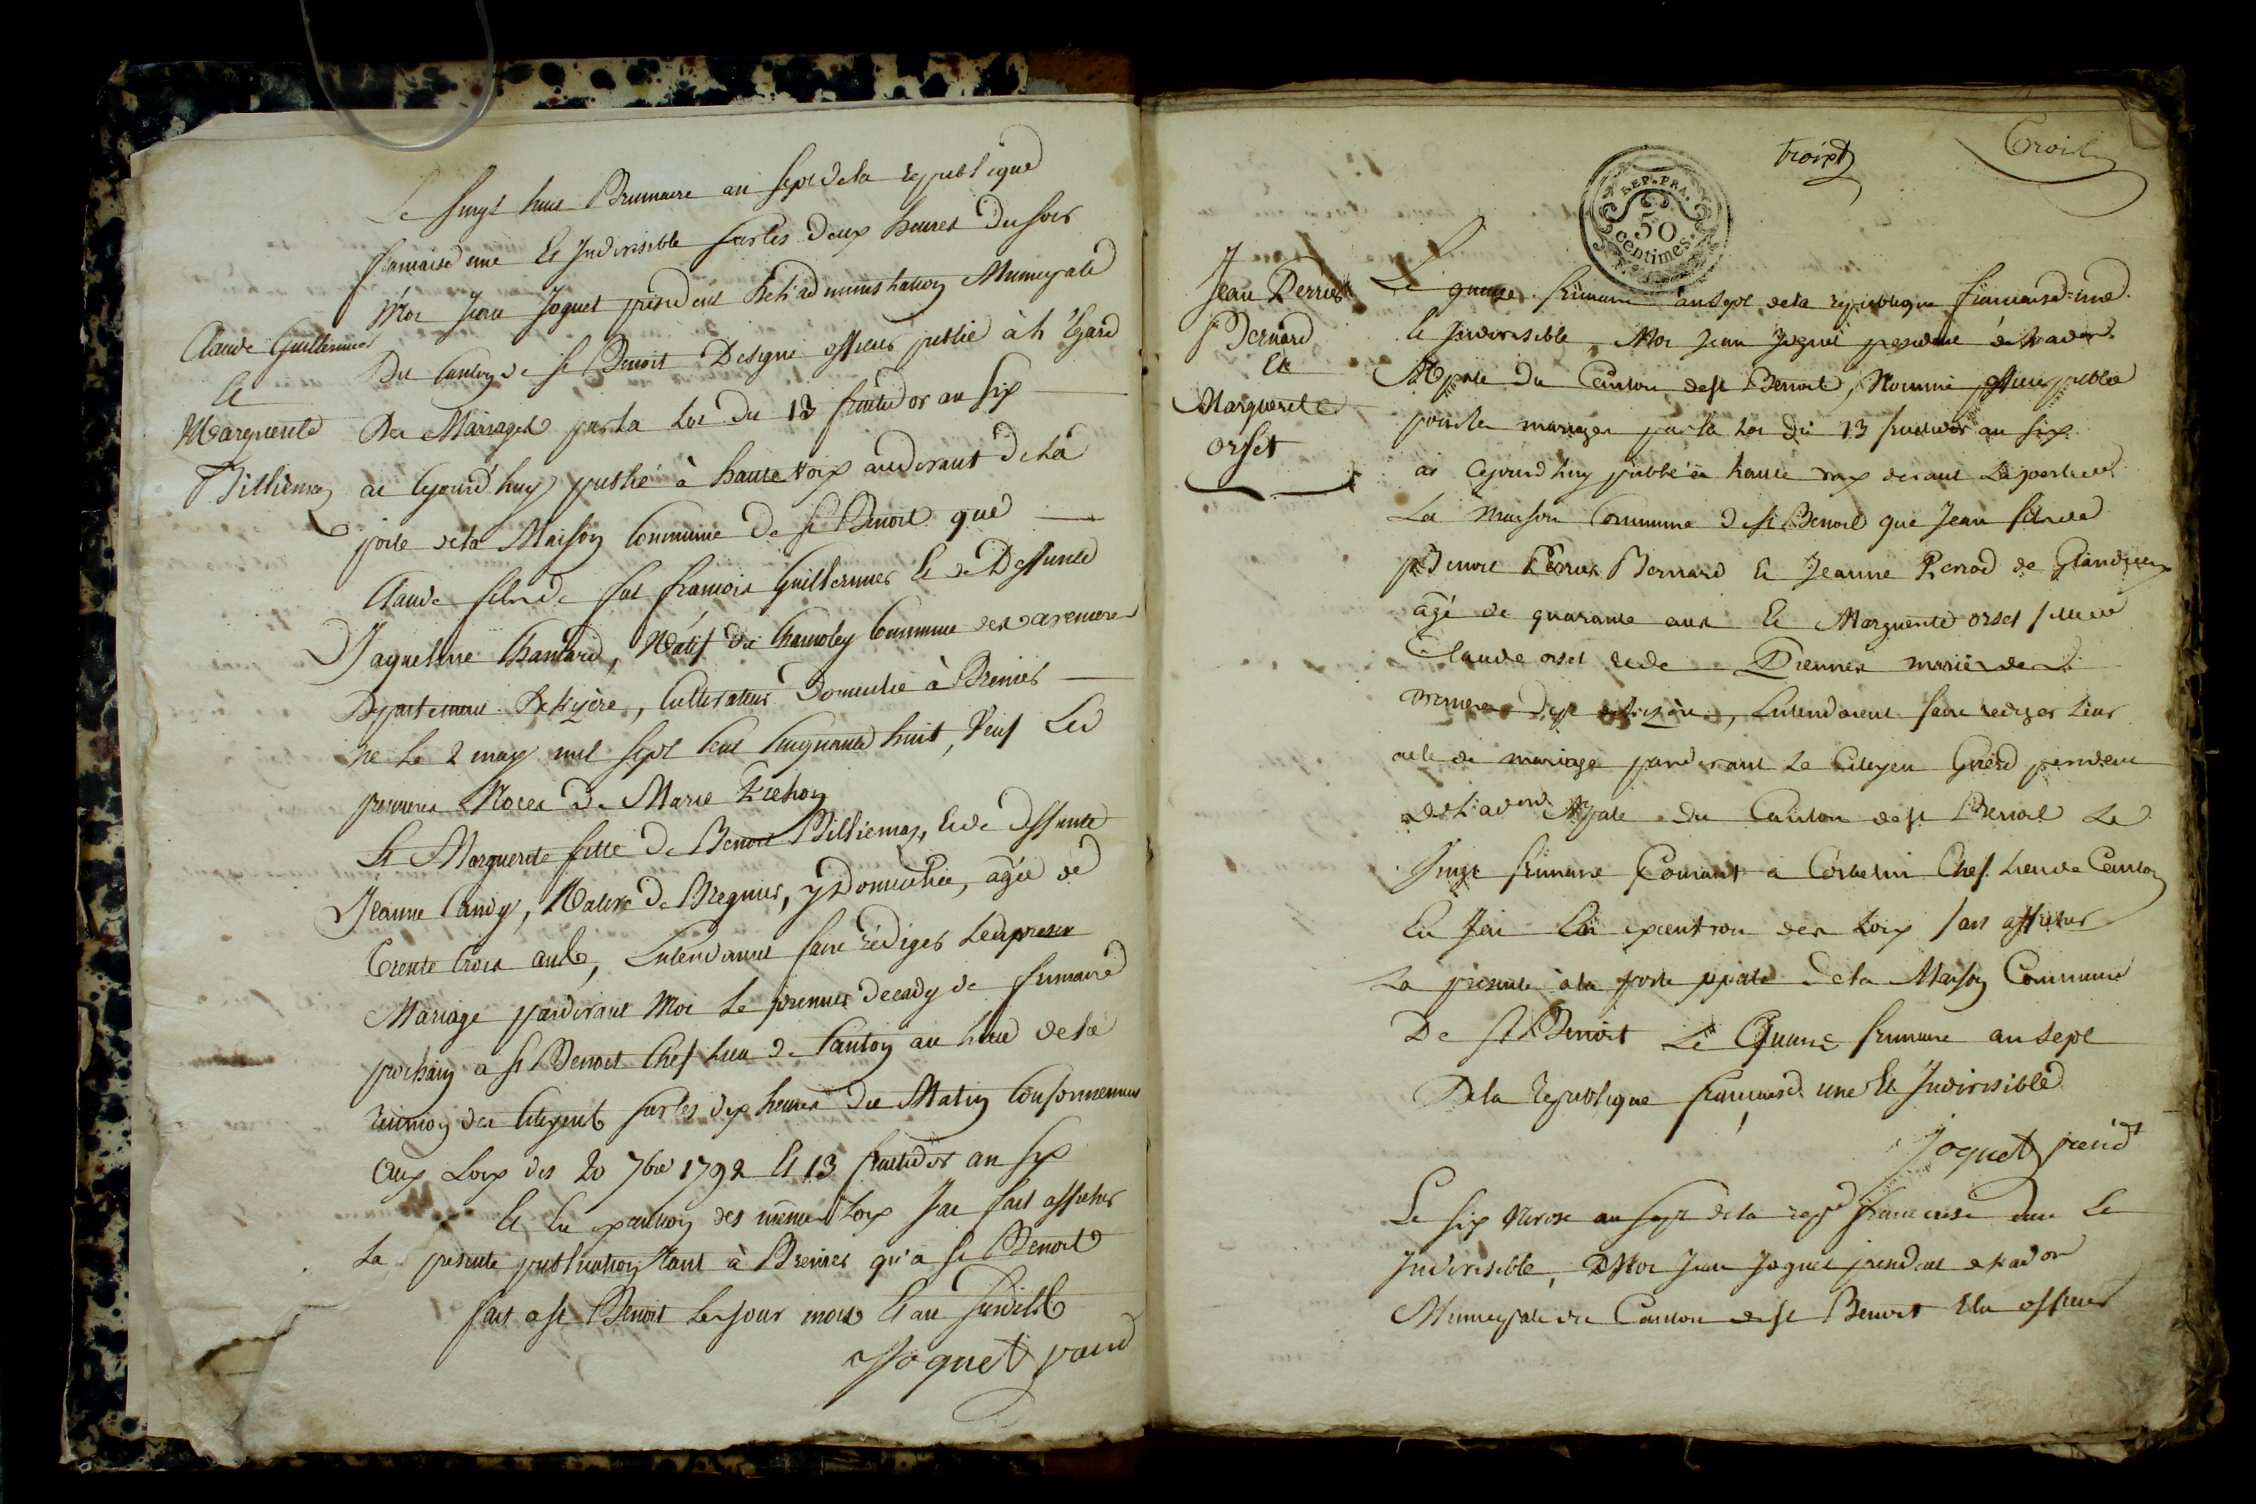 Le Vingt huit Brumaire an sept de la republique
francaise une Et Indivisible sur les deux heures du soir
Moi Jean Joguet president de l'administration Municipale
Du Canton de St Benoit Designé officier public à l'Egard
Des Mariages par la Loi du 13 fructidor an six
ai Cejourd'huy publié à haute voix audevant de La
porte de la Maison Commune De St Benoit que
Claude fils de feu francois Guillermier Et de Deffunte
Jaqueline Chantard, Natif du Commune des avenieres
Departement De l'izere, Cultivateur Domicilié à Brenier
né le 2 may mil sept Cent Cinquante huit, Veuf En
premieres Noces De Marie
Et Marguerite fille De Benoit Billiemaz, Et de deffunte
Jeanne Candy, Native De Bregnier, y Domiciliée, agée de
Trente trois ans, Entendant faire rédiger Leur
Mariage pardevant Moi le premier decady de frimaire
prochain a St Benoit Chef lieu de Canton au lieu de la
reunion des Citoyens sur les dix heures du Matin Conformement
aux Loix des 20 7bre 1792 Et 13 fructidor an six
Et En execution des mêmes Loix J'ai fait afficher
La presente publication tant à Brenier qu'a St Benoit
fait a St Benoit Les jour mois Et an susdits
Joguet presid
Claude Guillermier
Et
Marguerite
Billiemaz
troix
Troix
REP. FRA.
50
centimes.
Jean Perrier
Bernard
Et
Marguerite
orset
Le quinze frimaire an sept de la republique francaise une
Et Indivisible, Moi Jean Joguet president de l'adon
Mpale Du Canton de St Benoit, Nommé officier public
pour les mariages par la Loi du 13 fructidor an six
ai Cejourd'huy publié a haute voix devant La porte de
La maison Commune de St Benoit que Jean fils de
Benoit Perrier Bernard Et Jeanne Perrod de Glandieu
agé de quarante ans Et Marguerite orset fille de
Claude orset et de mariés des
avenieres dept de l'izère, Entendoient faire rediger Leur
acte de mariage pardevant Le Citoyen president
de l'adon Mpale du Canton de St Benoit Le
Vingt frimaire Courant a Corbelin Chef Lieu de Canton
Et J'ai En execution des Loix fait afficher
La presente à la porte ppale de la Maison Commune
De St Benoit Le Quinze frimaire an sept
De la republique francaise une Et Indivisible
Joguet presidt
Le six Nivose an sept de la rep francaise une Et
Indivisible, Moi Jean Joguet president de l'adon
Municipale du Canton de St Benoit Elu officier